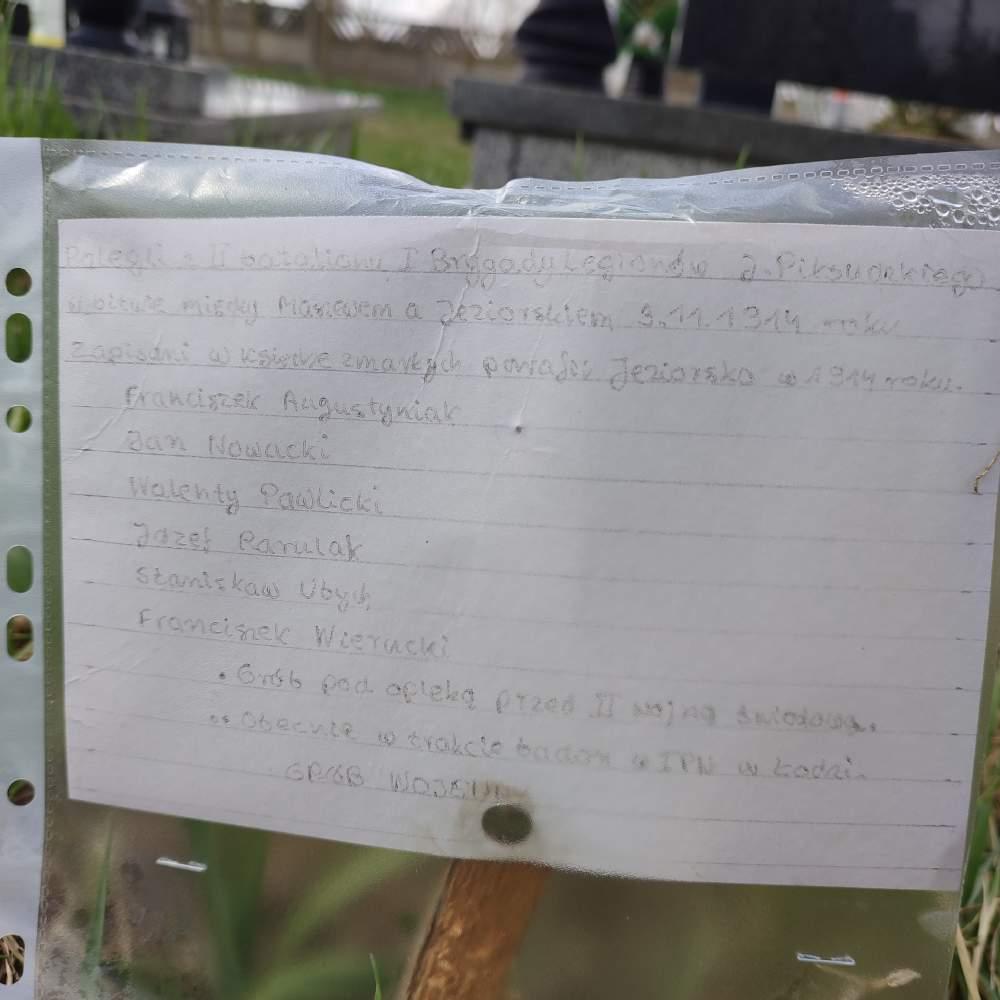 Polegli z II batalionu I Brygady Legionów J. Piłsudskiego
w bitwie między Maniewem a Jeziorskiem 9.11.1914 roku
Zapisani w księdze zmarłych parafii Jeziorsko w 1914 roku.
Franciszek Augustyniak
Jan Nowacki
Walenty Pawlicki
Józef Parulak
Stanisław Ubych
Franciszek Wierucki
. Grób pod opieką przed II wojną światową.
.. Obecnie w trakcie badań w IPN w Łodzi.
GRÓB WOJENNY